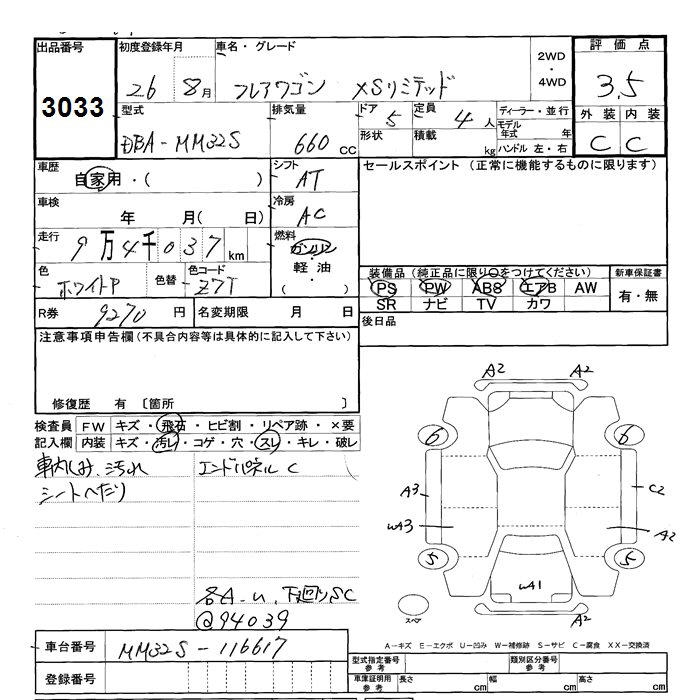 出品番号 初度登録年月 車名・グレード 2WD・4WD 評価点
3033 26 8月 フレアワゴン XSリミテッド 3.5
型式 排気量 ドア 5 定員 4人 ディーラー・並行 外装 内装
DBA-MM32S 660cc 形状 積載 kg モデル年式 年 ハンドル 左・右 C C
車歴 自家用・( ) シフト AT セールスポイント(正常に機能するものに限ります)
車検 年 月( 日) 冷房 AC
走行 9万4千037km 燃料 ガソリン 軽油・( )
色 ホワイトP 色替 色コード Z7T
装備品(純正品に限り○をつけてください) 新車保証書
PS PW ABS エアB AW 有・無
SR ナビ TV カワ
R券 9270円 名変期限 月 日 後日品
注意事項申告欄(不具合内容等は具体的に記入して下さい)
修復歴 有〔箇所 〕
検査員 FW キズ・飛石・ヒビ割・リペア跡・×要
記入欄 内装 キズ・汚レ・コゲ・穴・スレ・キレ・破レ
車内しみ、汚れ エンドパネル C
シートへたり
各A-U、下廻りSC
@94039
A2 A2
6 6
A3 C2
wA3 A2
5 5
wA1
スペア A2
車台番号 MM32S-116617
A-キズ E-エクボ U-凹み W-補修跡 S-サビ C-腐食 XX-交換済
登録番号 型式指定番号 参考 類別区分番号 参考
車庫証明用 参考 長さ cm 幅 cm 高さ cm